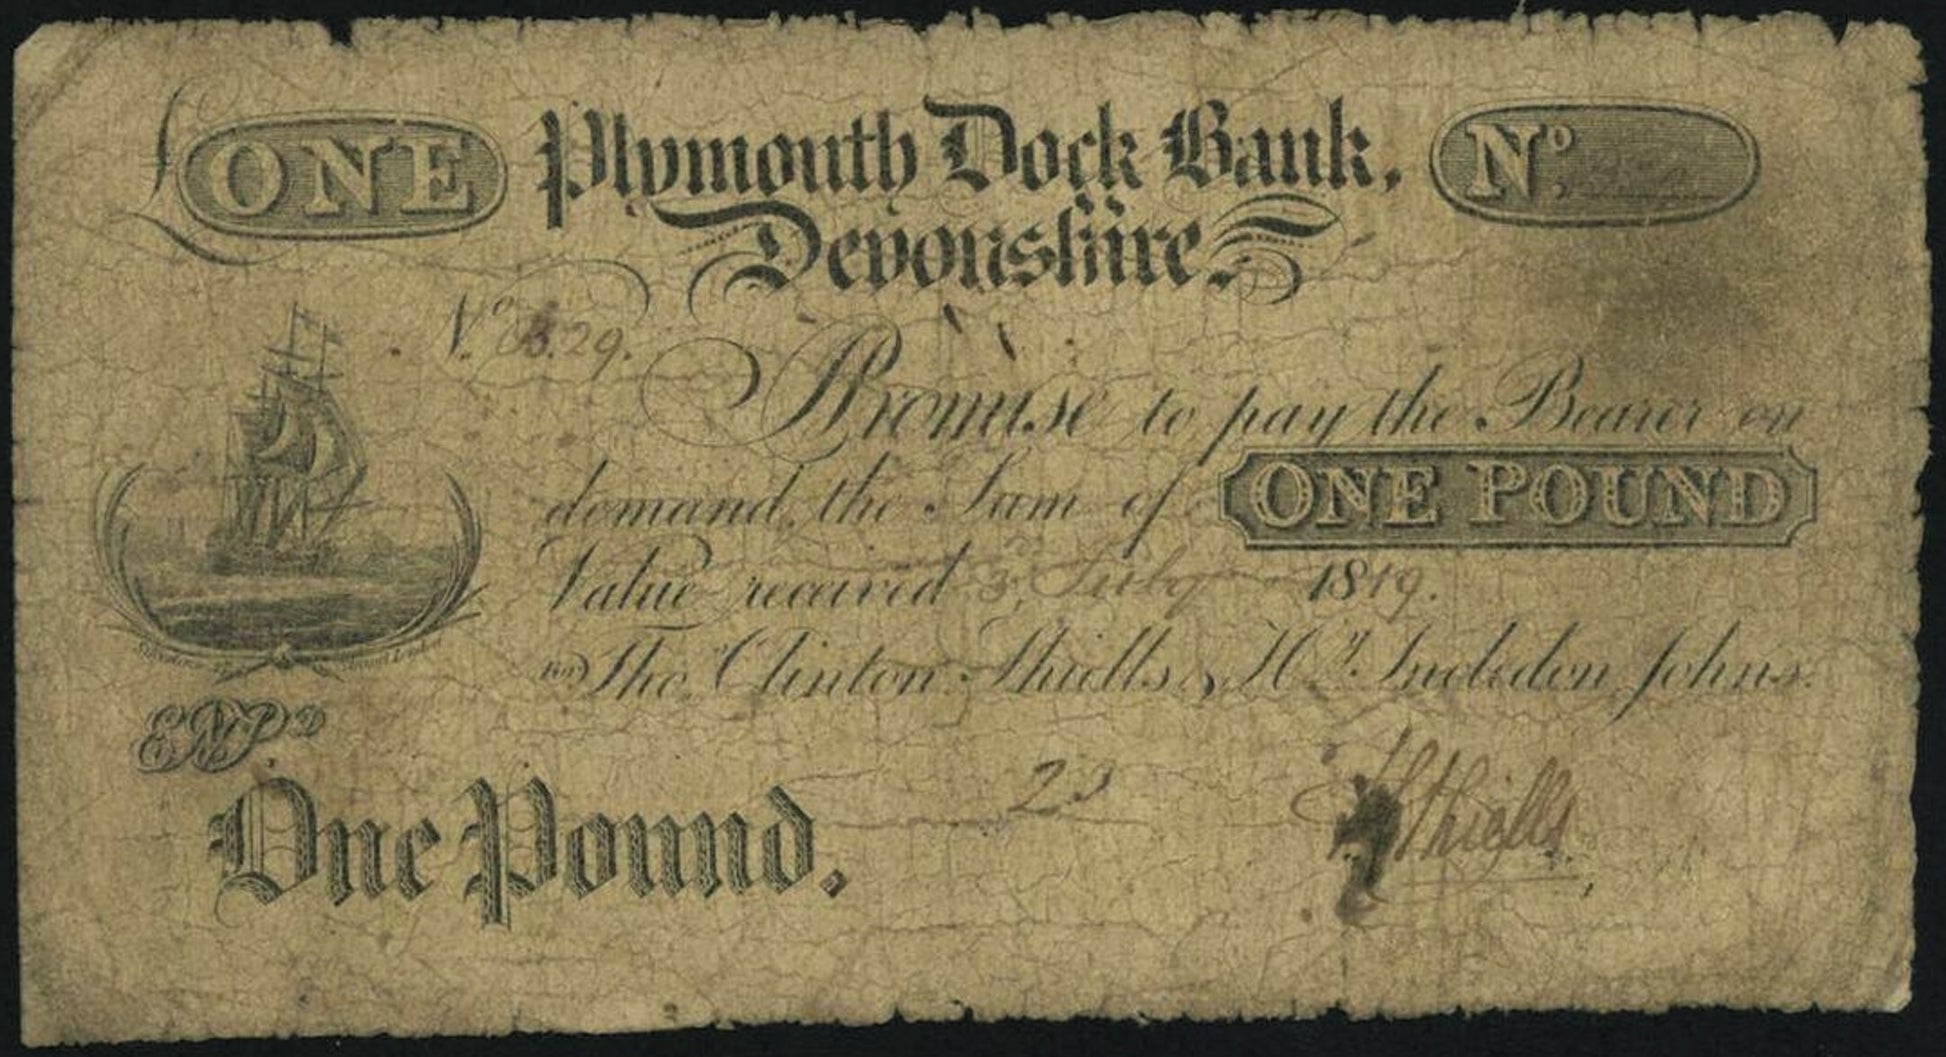 £ ONE Plymouth Dock Bank, No.
Devonshire.
No. 8529.
I Promise to pay the Bearer on
demand the Sum of ONE POUND
Value received 3 July 1819.
For Tho.s Clinton Shiells & Hy. Incledon Johns.
Entd
One Pound. 23 T C Shiells